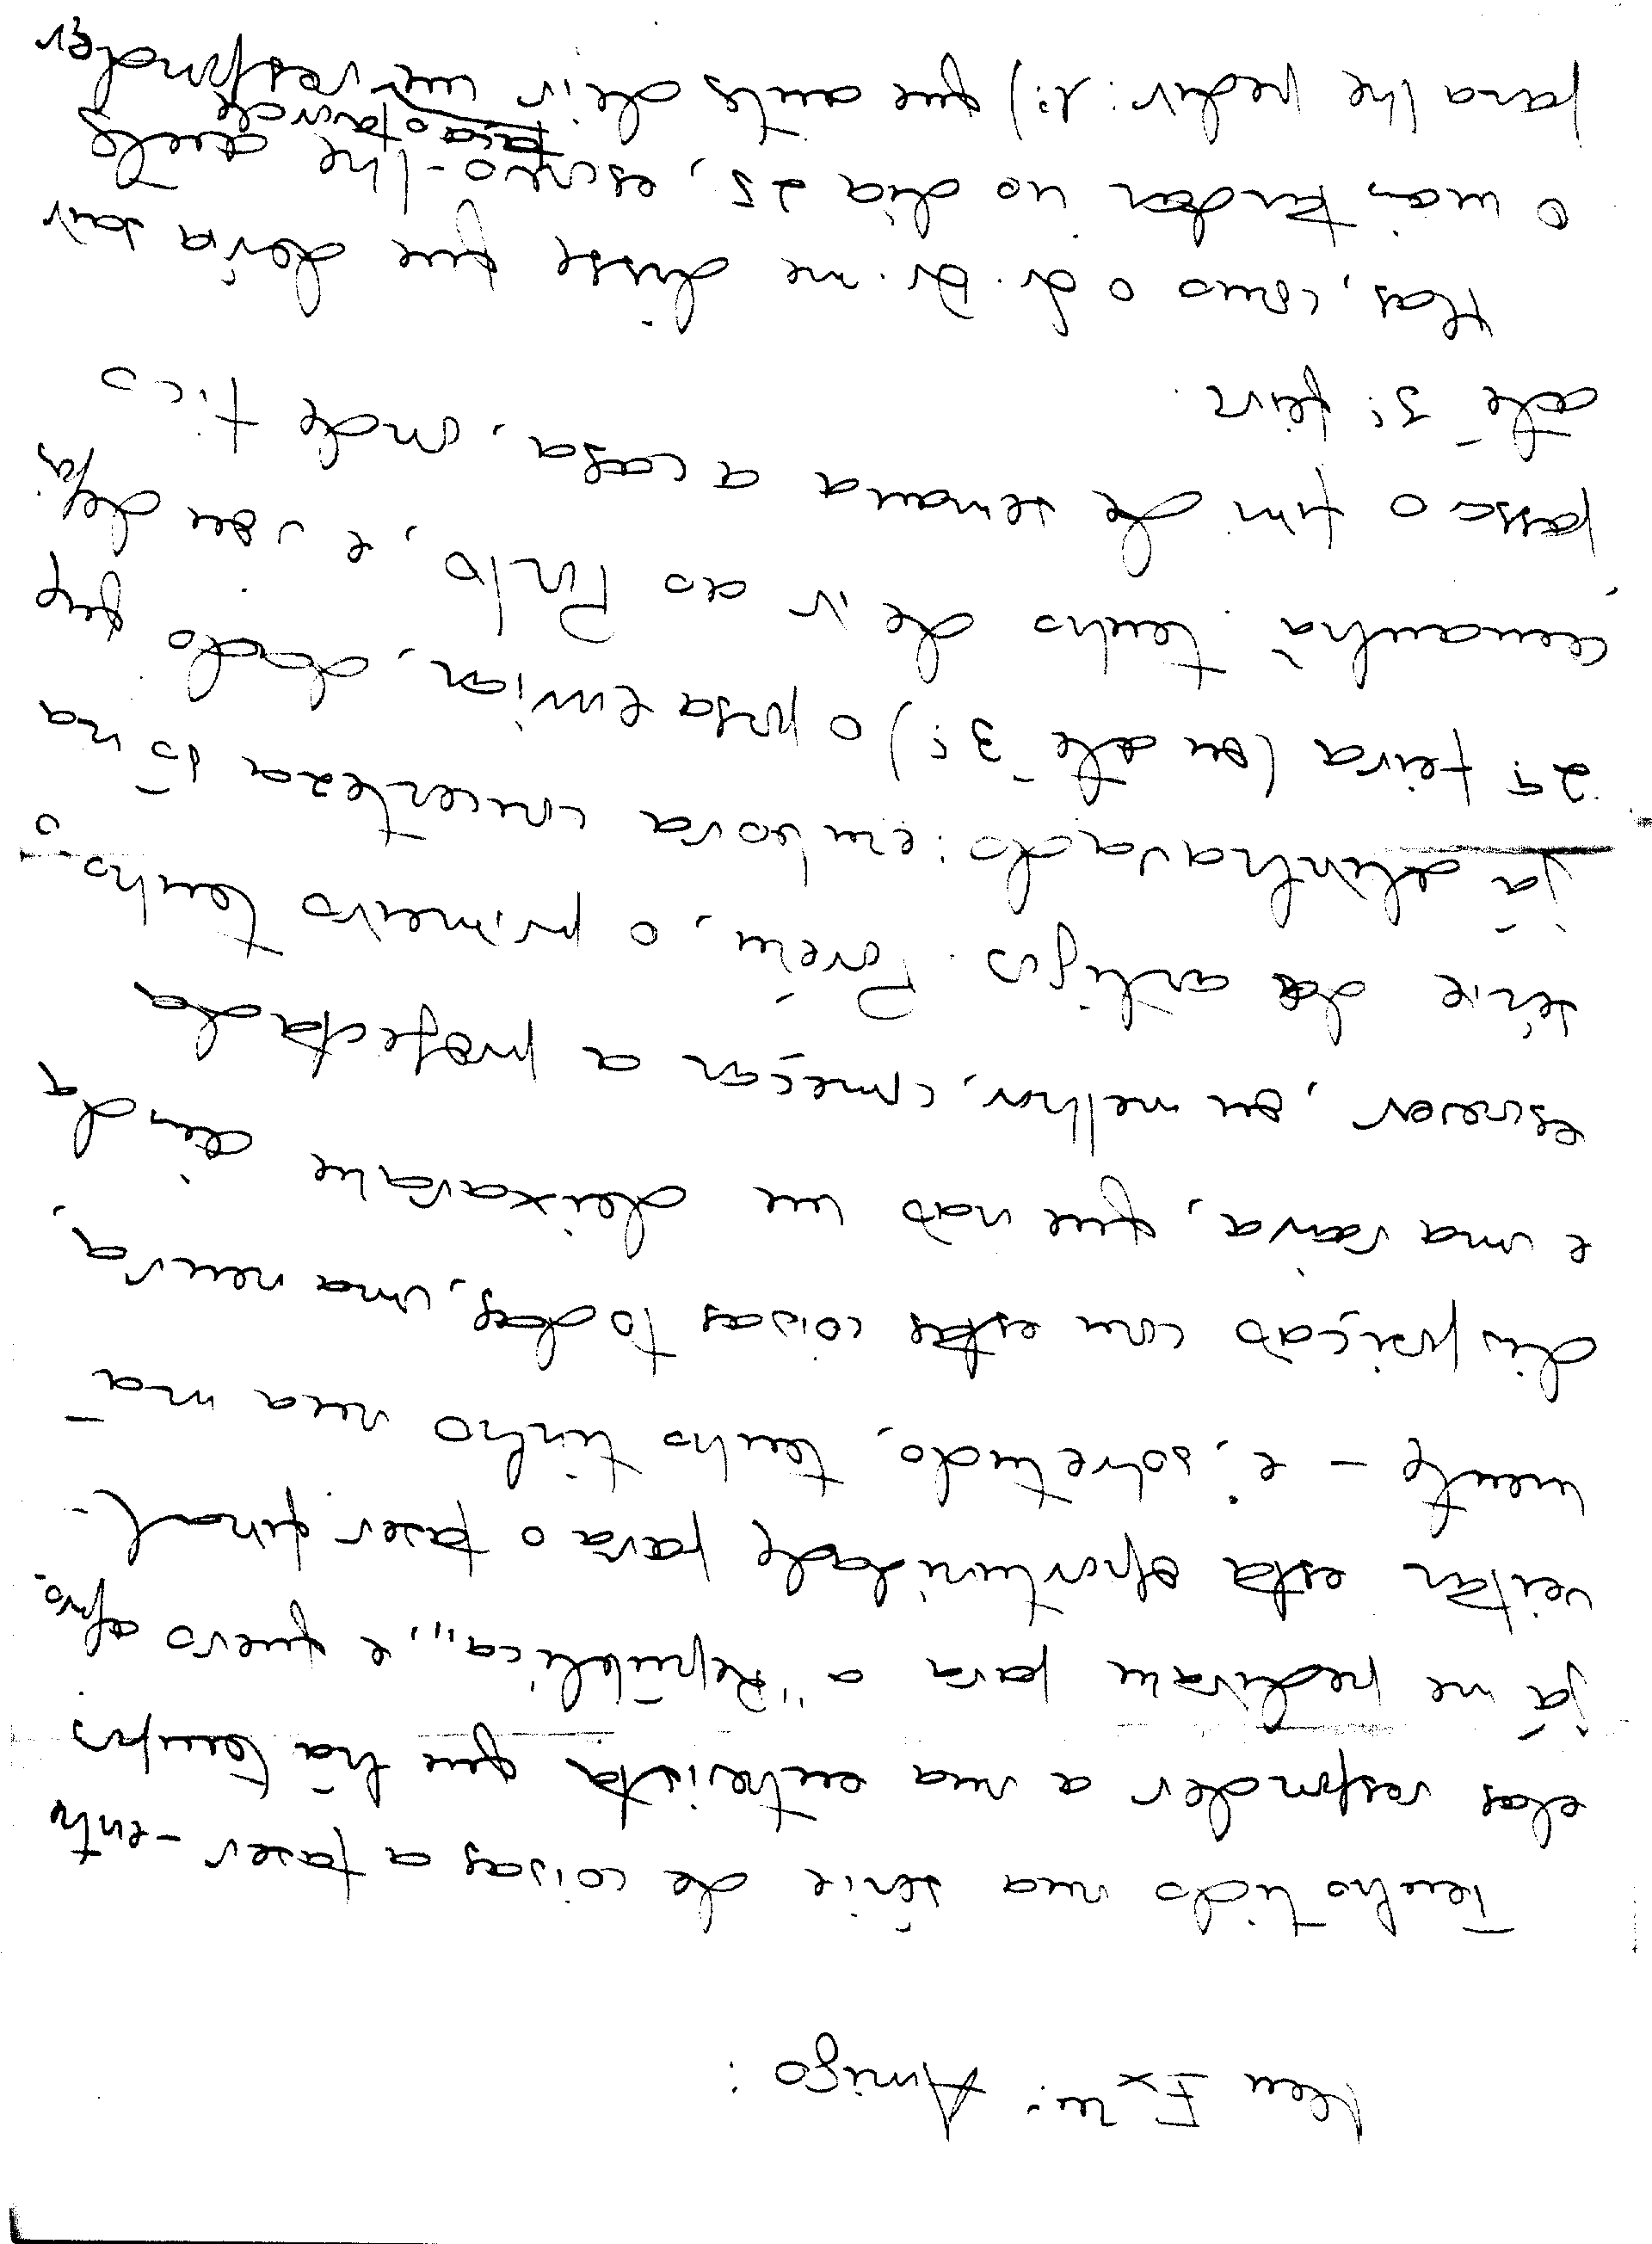 Meu Exmº Amigo:
Tenho tido uma série de coisas a fazer - entre
elas responder a uma entrevista que há tempos
já me pediram para a "República", e quero apro-
veitar esta oportunidade para o fazer final-
mente - e, sobretudo, tenho tinho uma má
disposição com estas coisas todas, uma neura,
e uma raiva, que não me deixaram ainda
escrever, ou melhor, começar a projectada
série de artigos. Porém, o primeiro tenho-o
já alinhavado: embora com certeza só na
2ª feira (ou até 3ª) o possa enviar, dado que
amanhã tenho de ir ao Porto, e
passo o fim de semana a casa, onde fico
até 3ª feira.
Mas, como o dr. me disse que devia sair
o mais tardar no dia 25, escrevo-lhe
para lhe pedir: 1º) que antes de ir me responder
faça o favor de